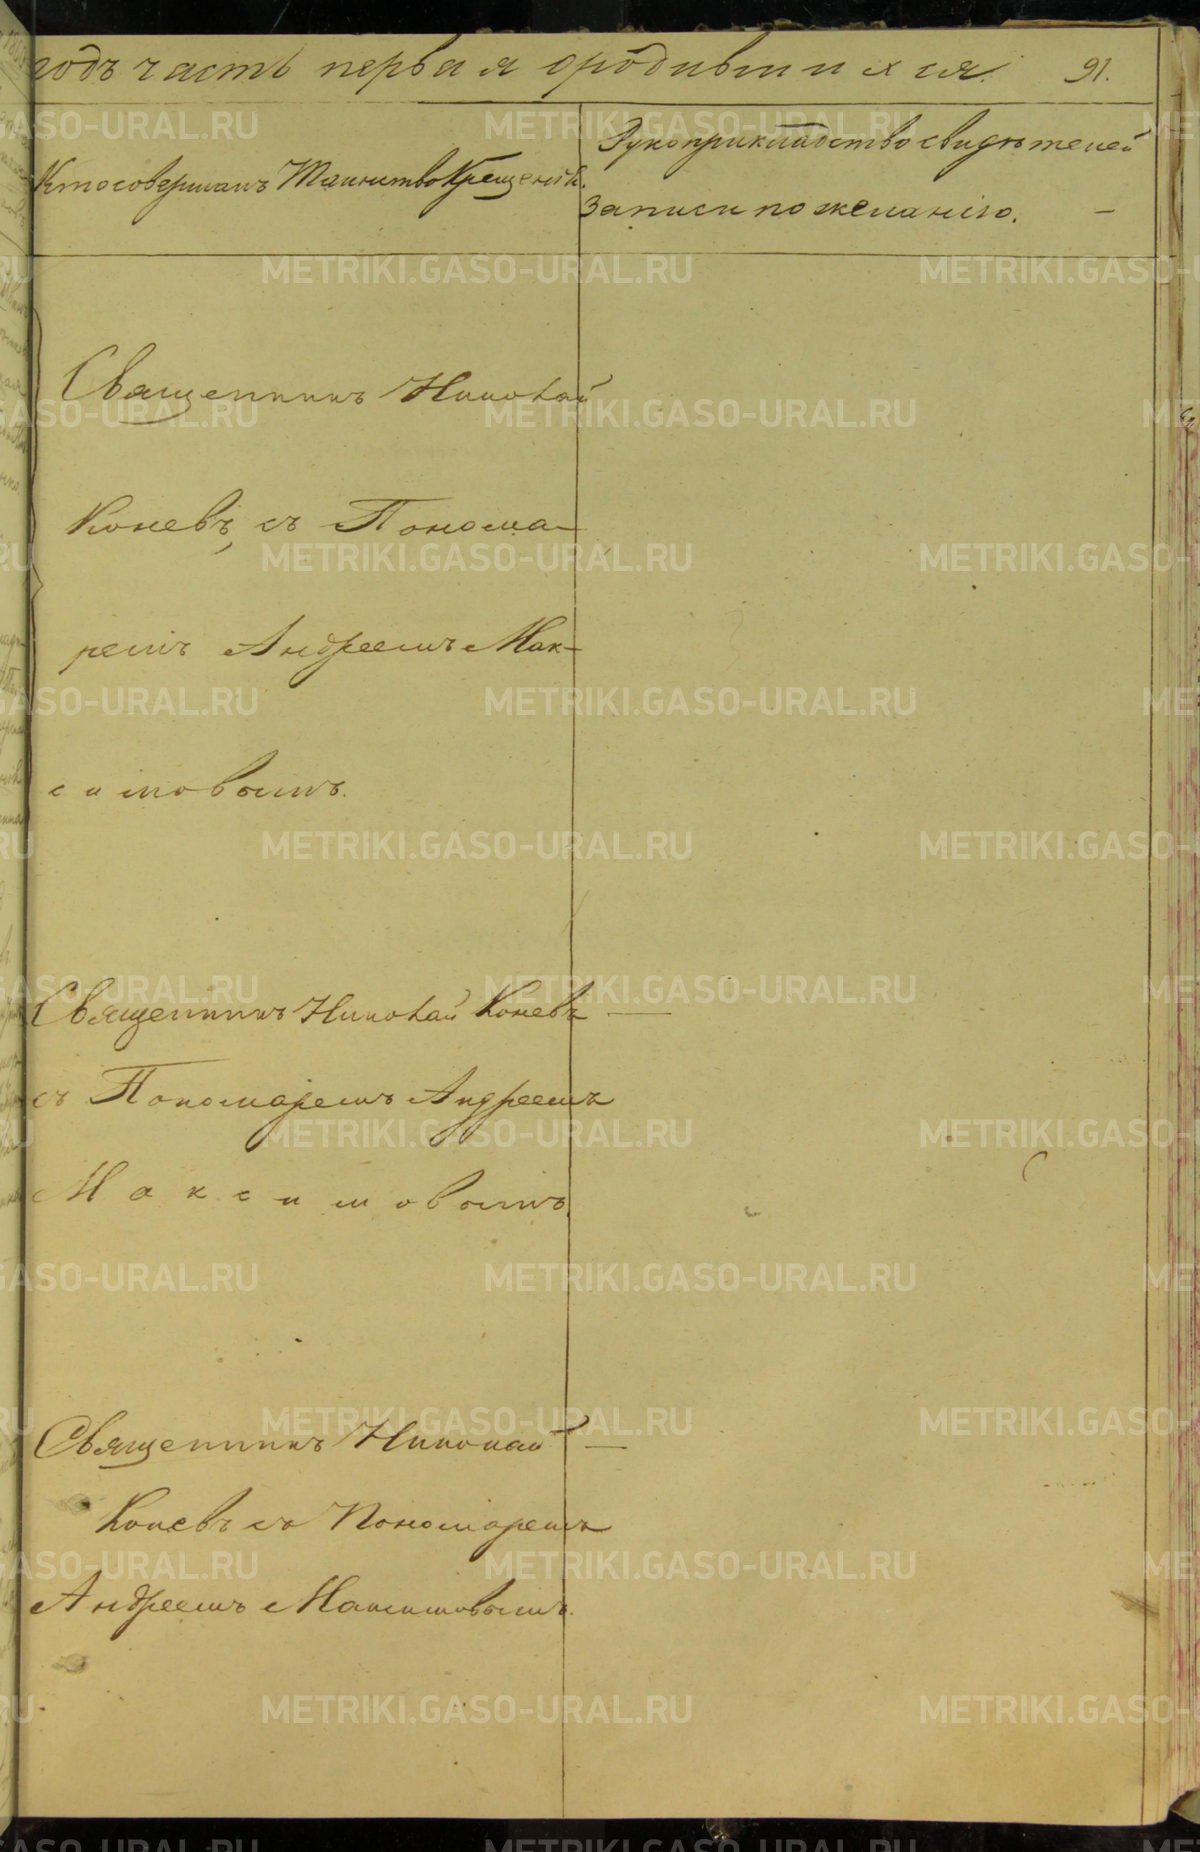 годъ часть первая о родившихся. 91.
Кто совершалъ Таинство Крещенія.
Рукоприкладство свидѣтелей
записи по желанію. —
Священникъ Николай
Коневъ, съ Понома-
ремъ Андреемъ Мак-
симовымъ.
Священникъ Николай Коневъ —
съ Пономаремъ Андреемъ
Максимовымъ.
Священникъ Николай —
Коневъ съ Пономаремъ
Андреемъ Максимовымъ.
METRIKI.GASO-URAL.RU